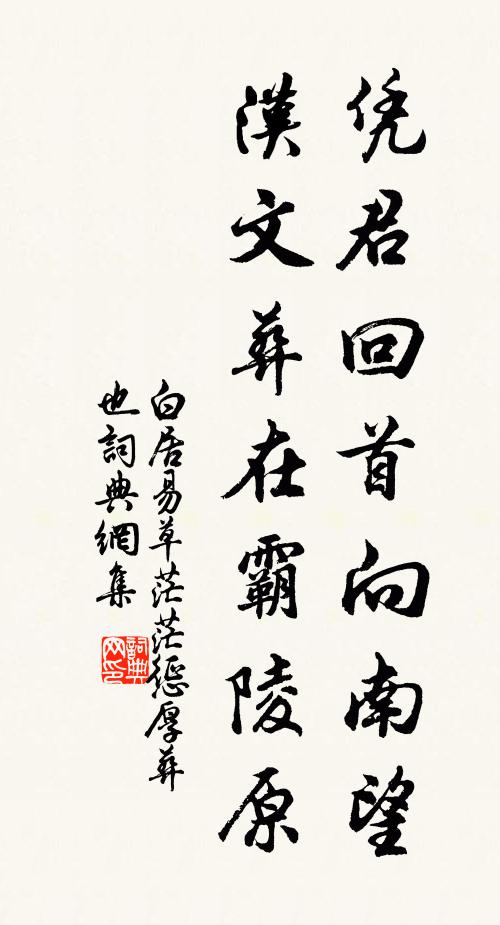 凭君回首向南望
漢文葬在霸陵原
白居易草茫茫懲厚葬
也詞典網集
詞典网印